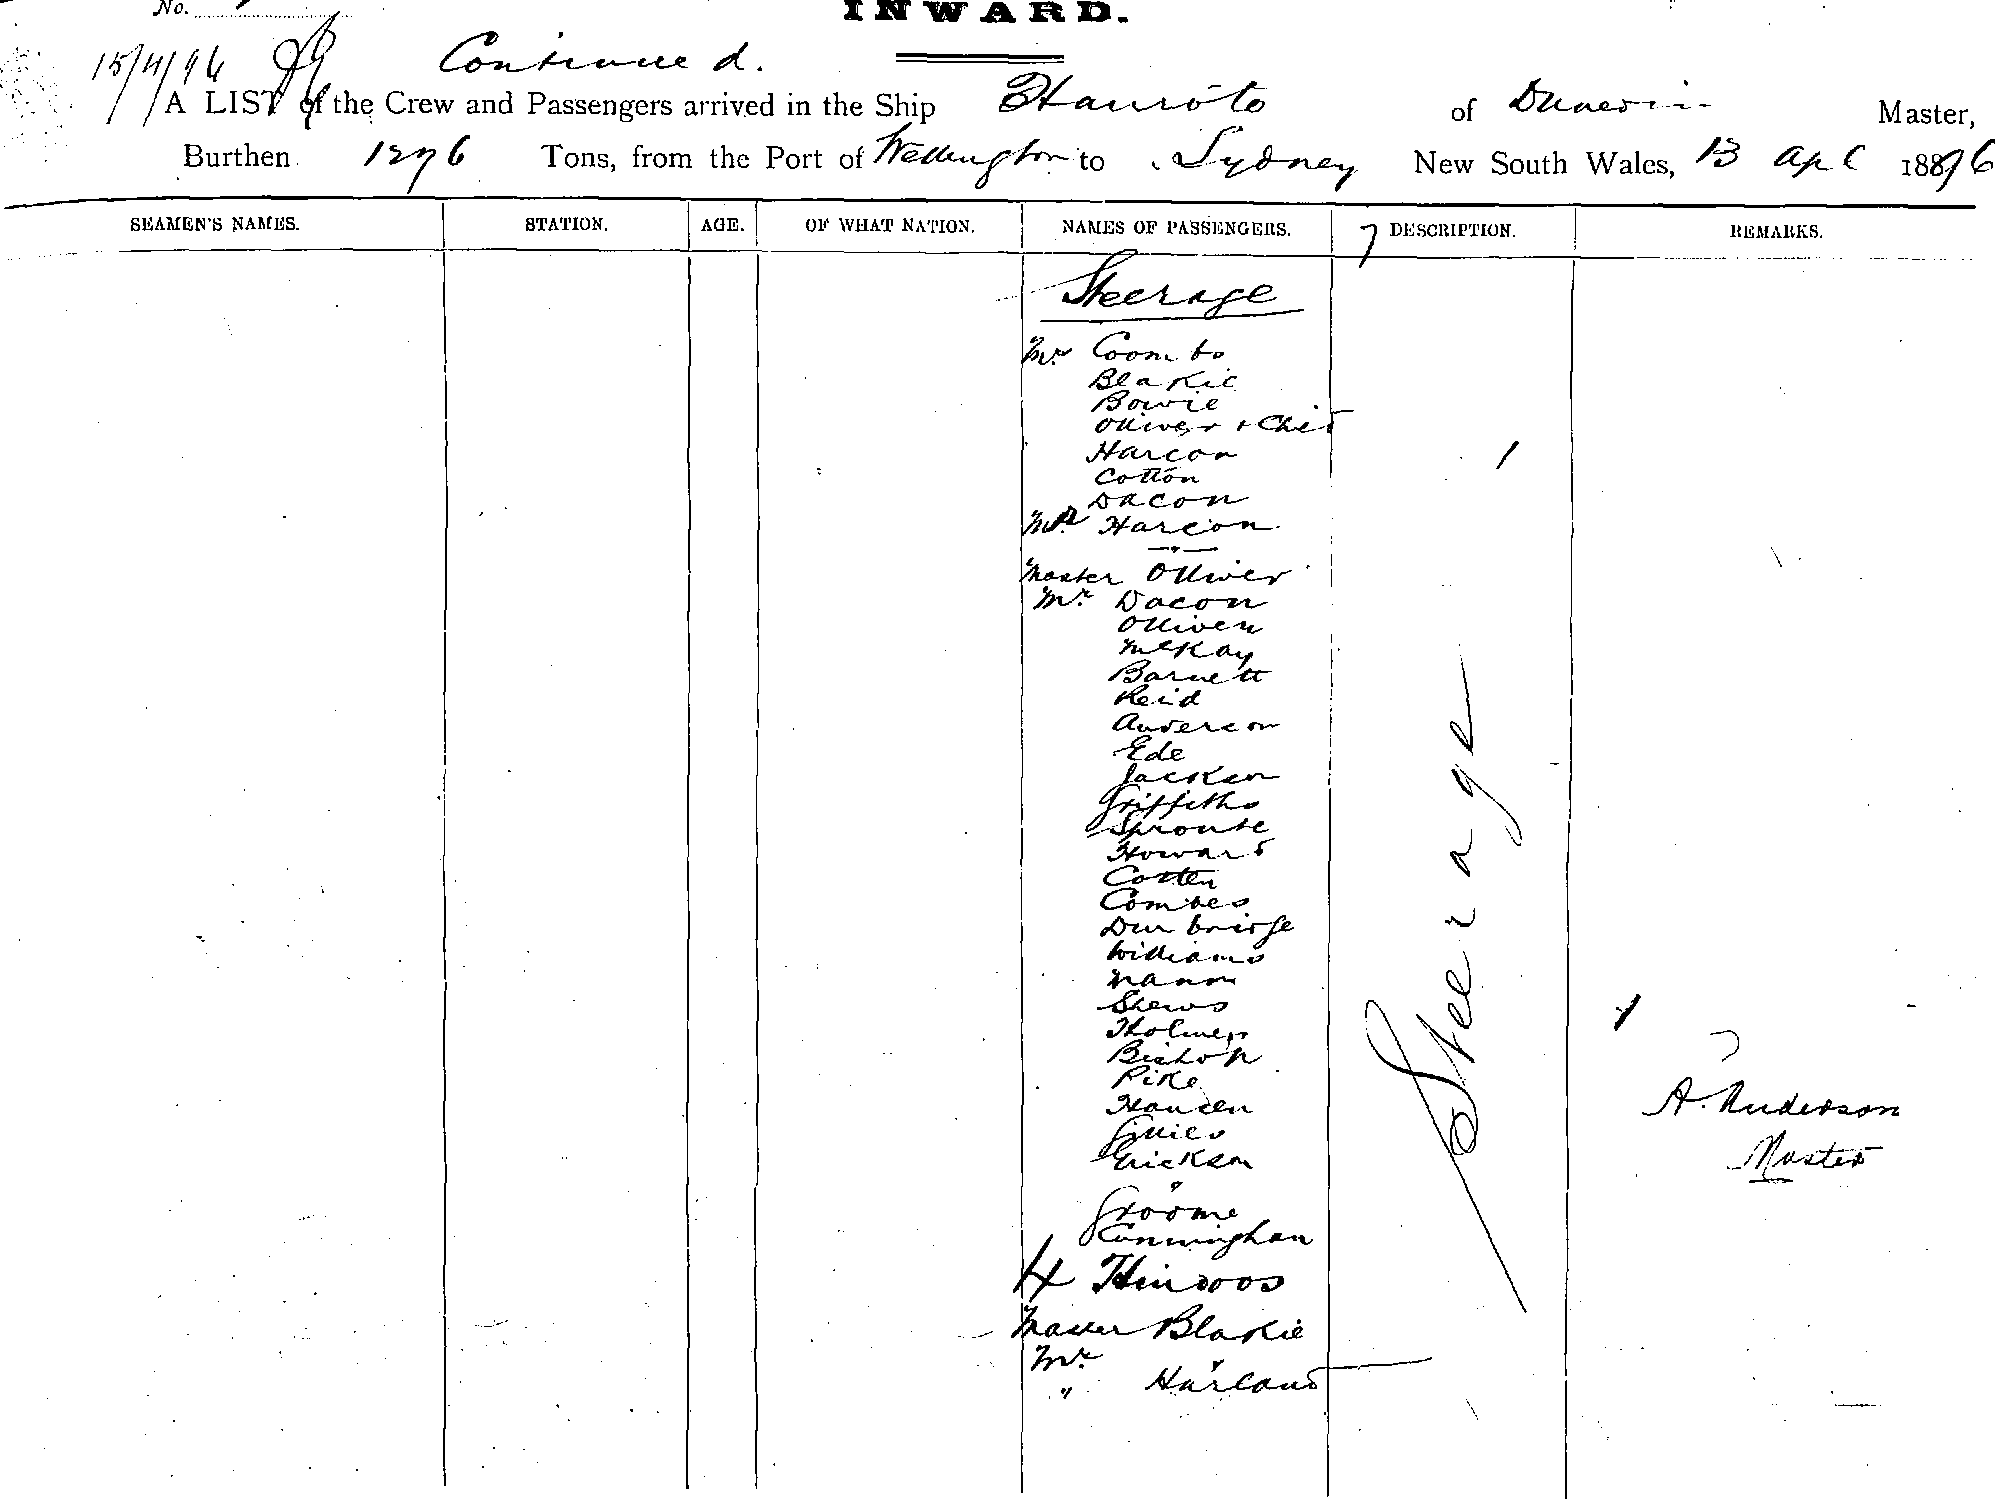 No.
INWARD.
15/4/96 Continued.
A LIST of the Crew and Passengers arrived in the Ship Hauroto of Dunedin Master,
Burthen 1276 Tons, from the Port of Wellington to Sydney New South Wales, 13 Apl 1896
SEAMEN'S NAMES. STATION. AGE. OF WHAT NATION. NAMES OF PASSENGERS. DESCRIPTION. REMARKS.
Steerage
Mrs Coombs
Blakie
Bowie
Olliver + Chid
Harcon
Cotton
Dacon
Mr Harcon
"
Master Olliver
Mr Dacon
Olliver
McKay
Barnett
Reid
Anderson
Ede
Jackson
Griffiths
Sproule
Howard
Cotten
Combes
Durbridge
Williams
Mann
Shews
Holmes
Bishop
Pike
Hansen
Gillies
Erickson
"
Groome
Cunningham
4 Hindoos
Master Blakie
Mr "
" Harland
Steerage
A. Anderson
Master